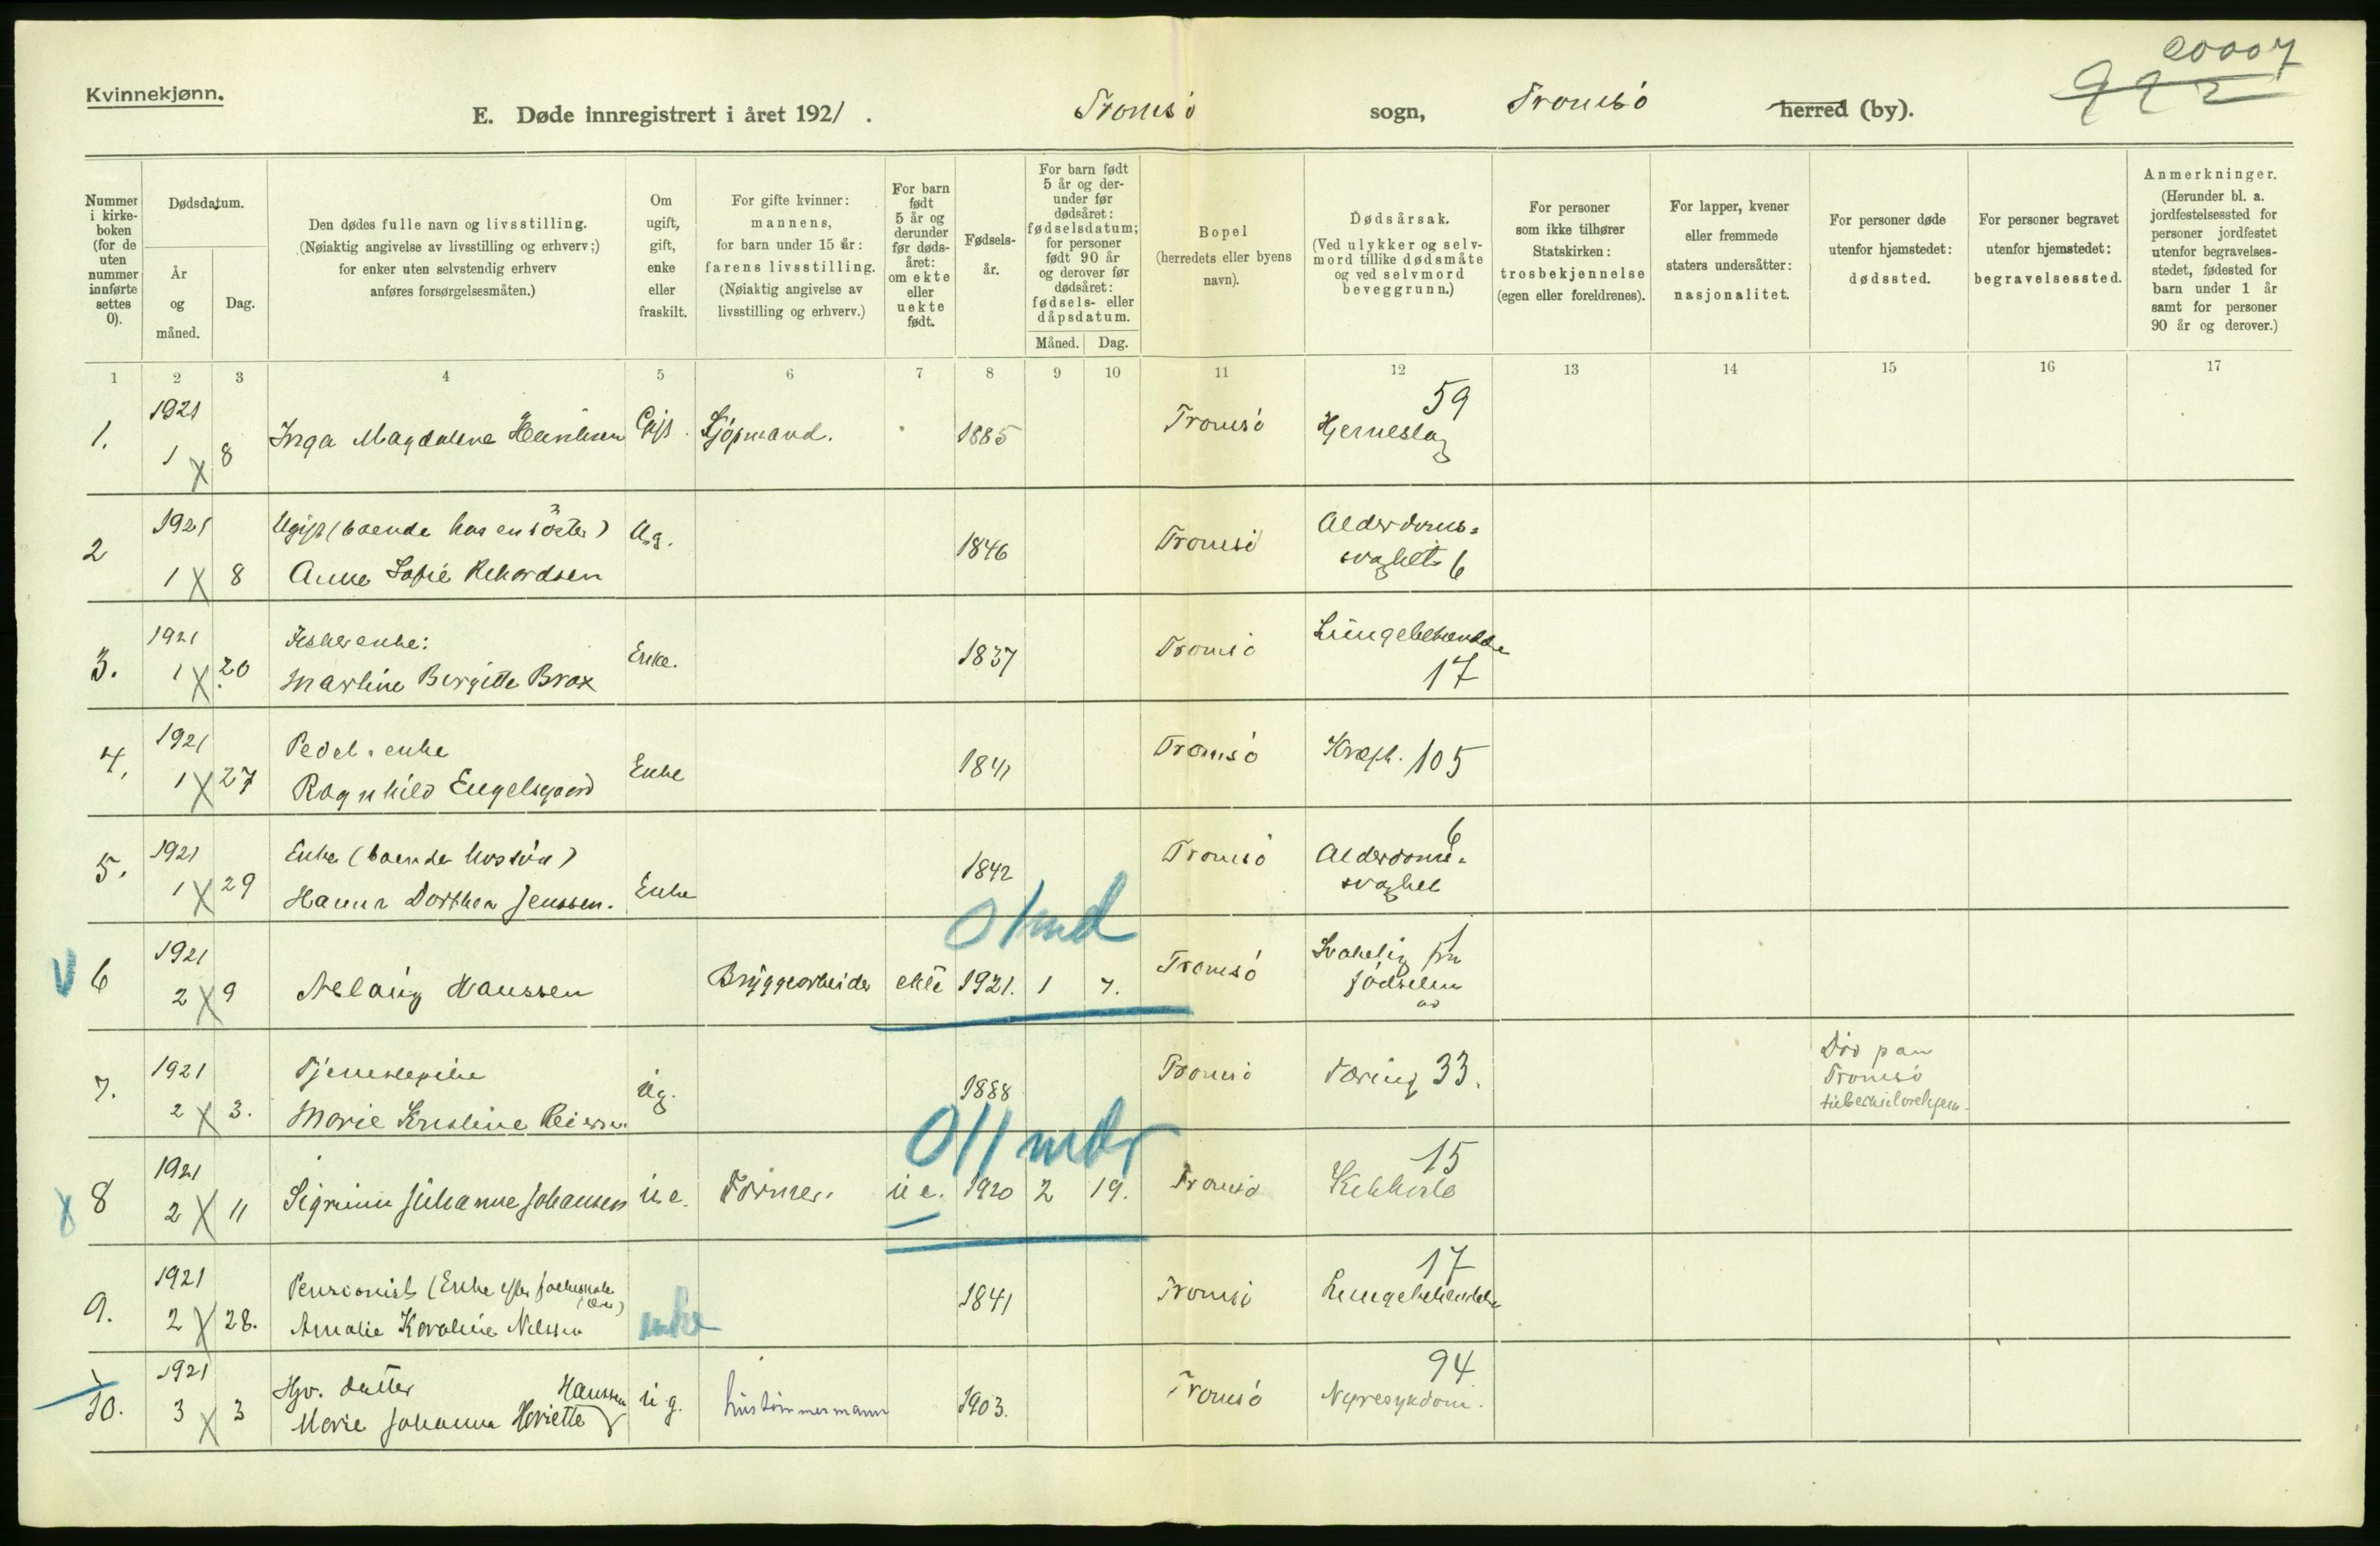 20007
992
Kvinnekjønn.
E. Døde innregistrert i året 1921. Tromsö sogn, Tromsö herred (by).
Nummer i kirkeboken (for de uten nummer innførte settes 0).
Dødsdatum.
År og måned.
Dag.
Den dødes fulle navn og livsstilling.
(Nøiaktig angivelse av livsstilling og erhverv;)
for enker uten selvstendig erhverv
anføres forsørgelsesmåten.)
Om ugift, gift, enke eller fraskilt.
For gifte kvinner:
mannens,
for barn under 15 år:
farens livsstilling.
(Nøiaktig angivelse av
livsstilling og erhverv.)
For barn født 5 år og derunder før dødsåret: om ekte eller uekte født.
Fødselsår.
For barn født 5 år og derunder før dødsåret: fødselsdatum; for personer født 90 år og derover før dødsåret: fødsels- eller dåpsdatum.
Måned. Dag.
Bopel
(herredets eller byens
navn).
Dødsårsak.
(Ved ulykker og selv-
mord tillike dødsmåte
og ved selvmord
beveggrunn.)
For personer
som ikke tilhører
Statskirken:
trosbekjennelse
(egen eller foreldrenes).
For lapper, kvener
eller fremmede
staters undersåtter:
nasjonalitet.
For personer døde
utenfor hjemstedet:
dødssted.
For personer begravet
utenfor hjemstedet:
begravelsessted.
Anmerkninger.
(Herunder bl. a.
jordfestelsessted for
personer jordfestet
utenfor begravelses-
stedet, fødested for
barn under 1 år
samt for personer
90 år og derover.)
1 2 3 4 5 6 7 8 9 10 11 12 13 14 15 16 17
1. 1921 1 8 Inga Magdalene Gift. Kjöpmand. 1885 Tromsö Hjerneslag 59
2 1921 1 8 Ugift (boende hos en söster) Ug. 1846 Tromsö Alderdoms-
Anne Sofie Rikardsen svaghet 6
3. 1921 1 20 Fiskerenke: Enke. 1837 Tromsö Lungebetændelse
Martine Bergitte Brox 17
4. 1921 1 27 Pedel-enke Enke 1841 Tromsö Kræft. 105
Ragnhild Engelsgaard
5. 1921 1 29 Enke (boende hos sön) Enke 1842 Tromsö Alderdoms- 6
Hanna Dorthea Jenssen. svaghet
0 1 md
6 1921 2 9 Aslaug Hanssen Bryggearbeider ekte 1921. 1 7. Tromsö Svakelig fra 1
födselen
av
7. 1921 2 3. Tjenestepike ug. 1888 Tromsö Tæring 33. Död paa
Marie Kristine Tromsö
tuberkulosehjem.
0 11 mdr
8 1921 2 11 Johanne Johansen u e. u e. 1920 2 19. Tromsö Kikhoste 15
9. 1921 2 28. Pensionist (Enke efter enke 1841 Tromsö Lungebetændelse 17
Amalie Karoline Nilssen
10. 1921 3 3 Hjv. datter Hanssen ug. hustömmermann 1903. Tromsö Nyresykdom. 94
Marie Johanna Henriette